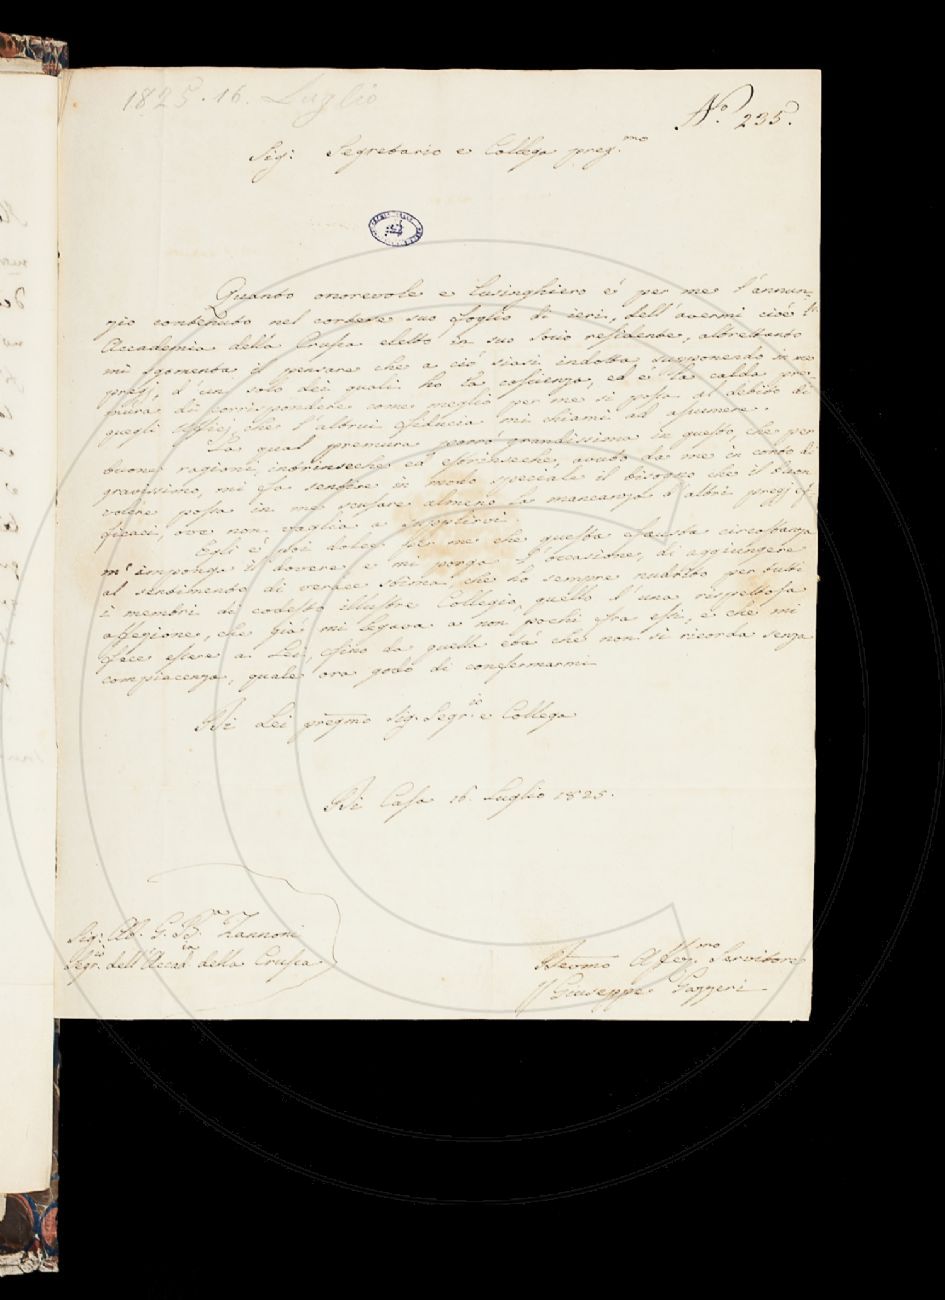 1825. 16. Luglio
N.º 235.
Sig: Segretario e Collega preg.mo
Quanto onorevole e lusinghiero é per me l'annun-
zio contenuto nel cortese suo foglio di ieri, dell'avermi cioè
Accademia della Crusca eletto in suo Socio residente, altrettanto
mi sgomenta il pensare che a ciò siasi indotta supponendo in me
pregj, d'un solo dei quali ho la coscienza, ed é la calda pre-
mura di corrispondere come meglio per me si possa al debito di
quegli uffizj, che l'altrui fiducia mi chiami ad assumere.
La qual premura grandissima in questo, che per
buone ragioni, intrinseche ed estrinseche, avuto da me in conto di
gravissimo, mi fa sentire in modo speciale il bisogno che il buon
volere possa in me scusare almeno la mancanza d'altri pregj ef-
ficaci, ove non vaglia a supplirvi.
Egli é poi dolce per me che questa fausta circostanza
m'imponga il dovere e mi porga l'occasione, di aggiungere
al sentimento di verace stima che ho sempre nudrito per tutti
i membri di codesto illustre Collegio, quello d'una rispettosa
affezione, che già mi legava a non pochi fra essi, e che mi
fece essere a Lei, fino da quella età che non si ricorda senza
compiacenza, quale ora godo di confermarmi
Di Lei pregmo Sig. Segr.io e Collega
Di Casa 16. Luglio 1825.
Sig: Ab. G. B.a Zannoni
Segr.io dell'Accad.ia della Crusca
Devmo Affez.mo Servitore
Giuseppe Gazzeri